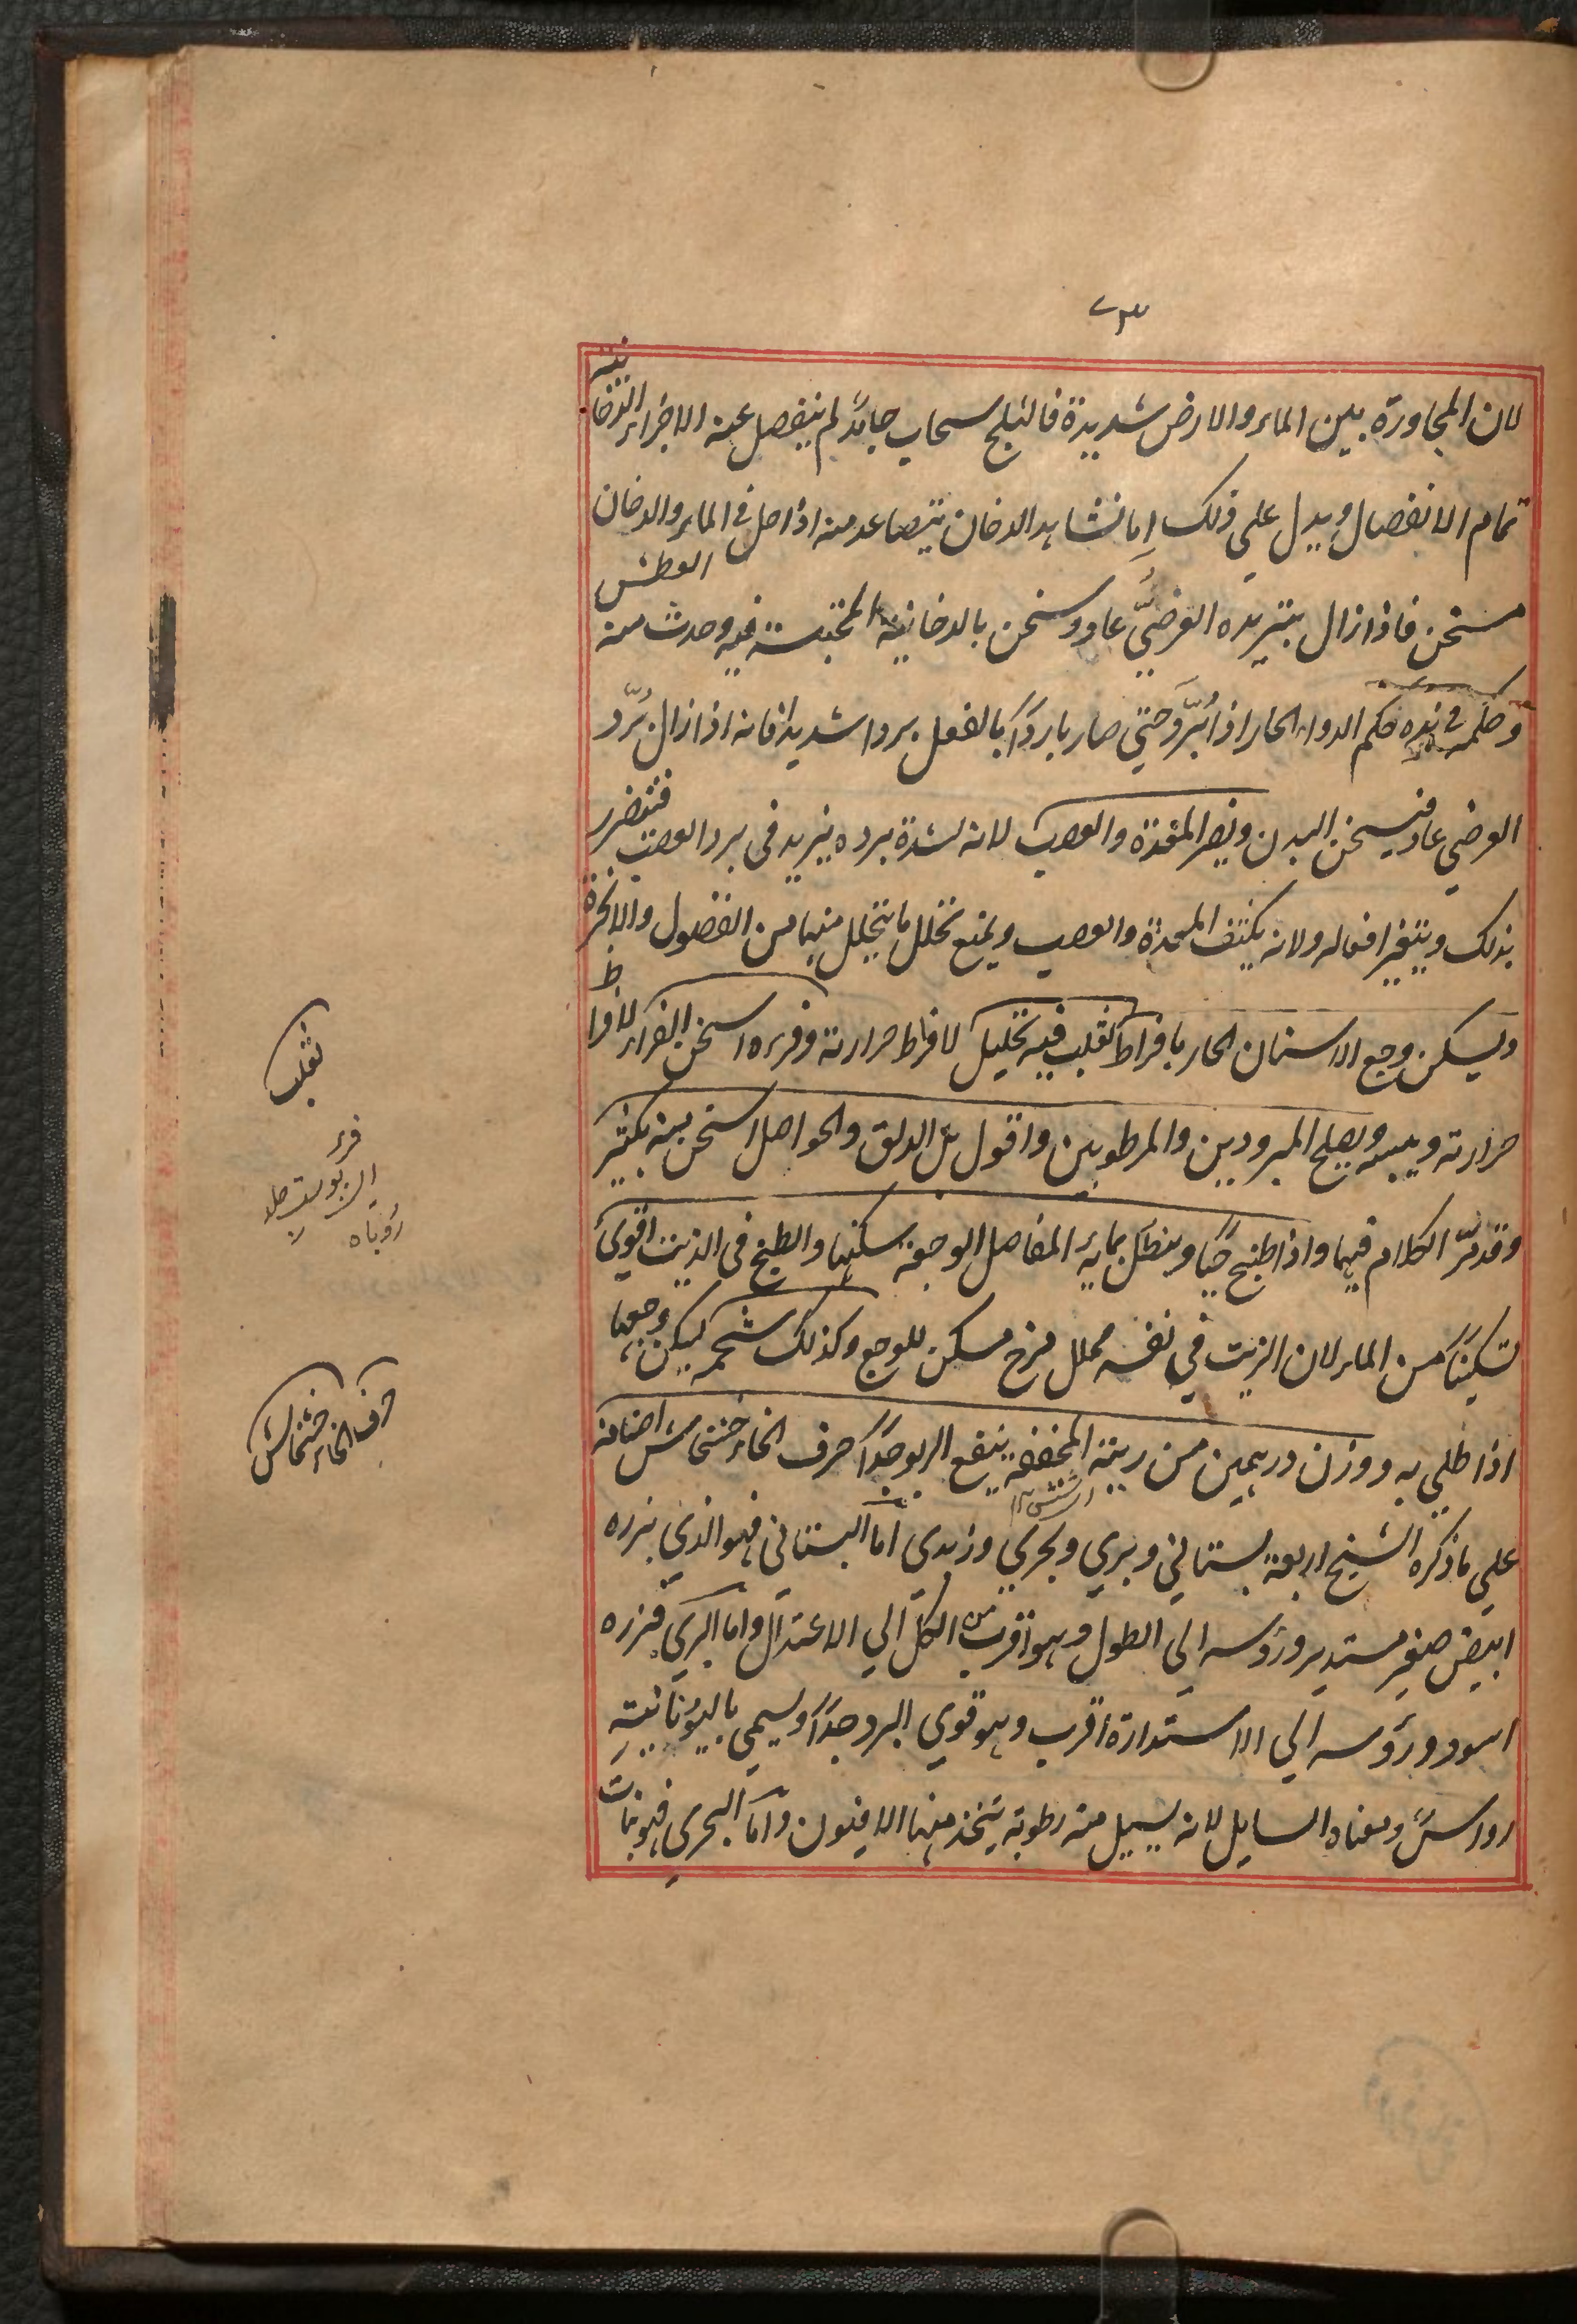 ٧٣
لان المجاورة بين الماء والارض شديدة فالثلج سحاب جامدٌ لم ينفصل عنه الاجزاء الدخانية
تمام الانفصال ويدل على ذلك اما نشاهد الدخان يتصاعد منه اذا حل في الماء والدخان
مسخن فاذا زال بتبريده العرضيّ عاد وسخن بالدخانية المحتبسة فيه وحدث منه العطش
وحكمه في هذه حكم الدواء الحار اذا بُرّد حتي صار باردًا بالفعل بردا شديدا فانه اذا زال برّد
العرضي عاد فيسخن البدن ويضر المعدة والعصب لانه لشدة برده يزيد في برد العصب فتتضرر
بذلك ويتغير افعاله ولانه يكثف المعدة والعصب ويمنع تحلل ما يتحلل منهما من الفضول والابخرة
ويسكن وجع الاسنان الحار بافراط ثعلب فيه تحليل لافراط حرارته وفروه اسخن الفراء لافراط
حرارته ويبسه ويصلح المبرودين والمرطوبين واقول بل الدلق والحواصل اسخن منه بكثير
وقد مرّ الكلام فيهما واذا طبخ حيًا وينطل بمايه المفاصل الوجعة سكنها والطبخ في الزيت اقوي
تسكينًا من الماء لان الزيت في نفسه محلل مرخ مسكن للوجع وكذلك شحمه يسكن وجعها
اذا طلي به ووزن درهمين من ريته المجففة ينفع الربو جدًا حرف الخاء خشخاش اصنافه
علي ما ذكره الشيخ اربعة بستاني وبري وبحري وزبدي اما البستاني فهو الذي بزره
ابيض صغير مستدير ورؤسه الي الطول وهو اقرب من الكل الي الاعتدال واما البري فبزره
اسود ورؤسه الي الاستدارة اقرب وهو قوي البرد جدًا ويسمي باليونانية
رواس ومعناه السايل لانه يسيل منه رطوبة يتخذ منها الافيون واما البحري فهو نبات
ثعلب
فرء
پوست
روباه
حرف الخاء خشخاش